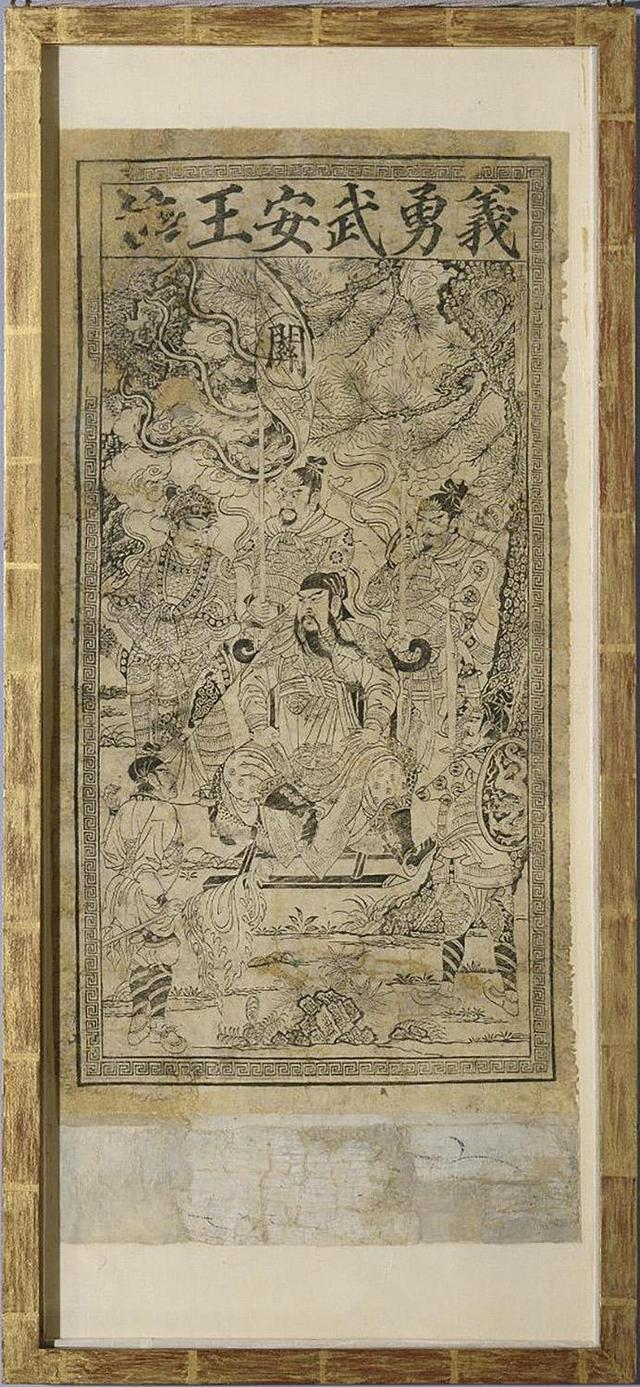 義勇武安王
關